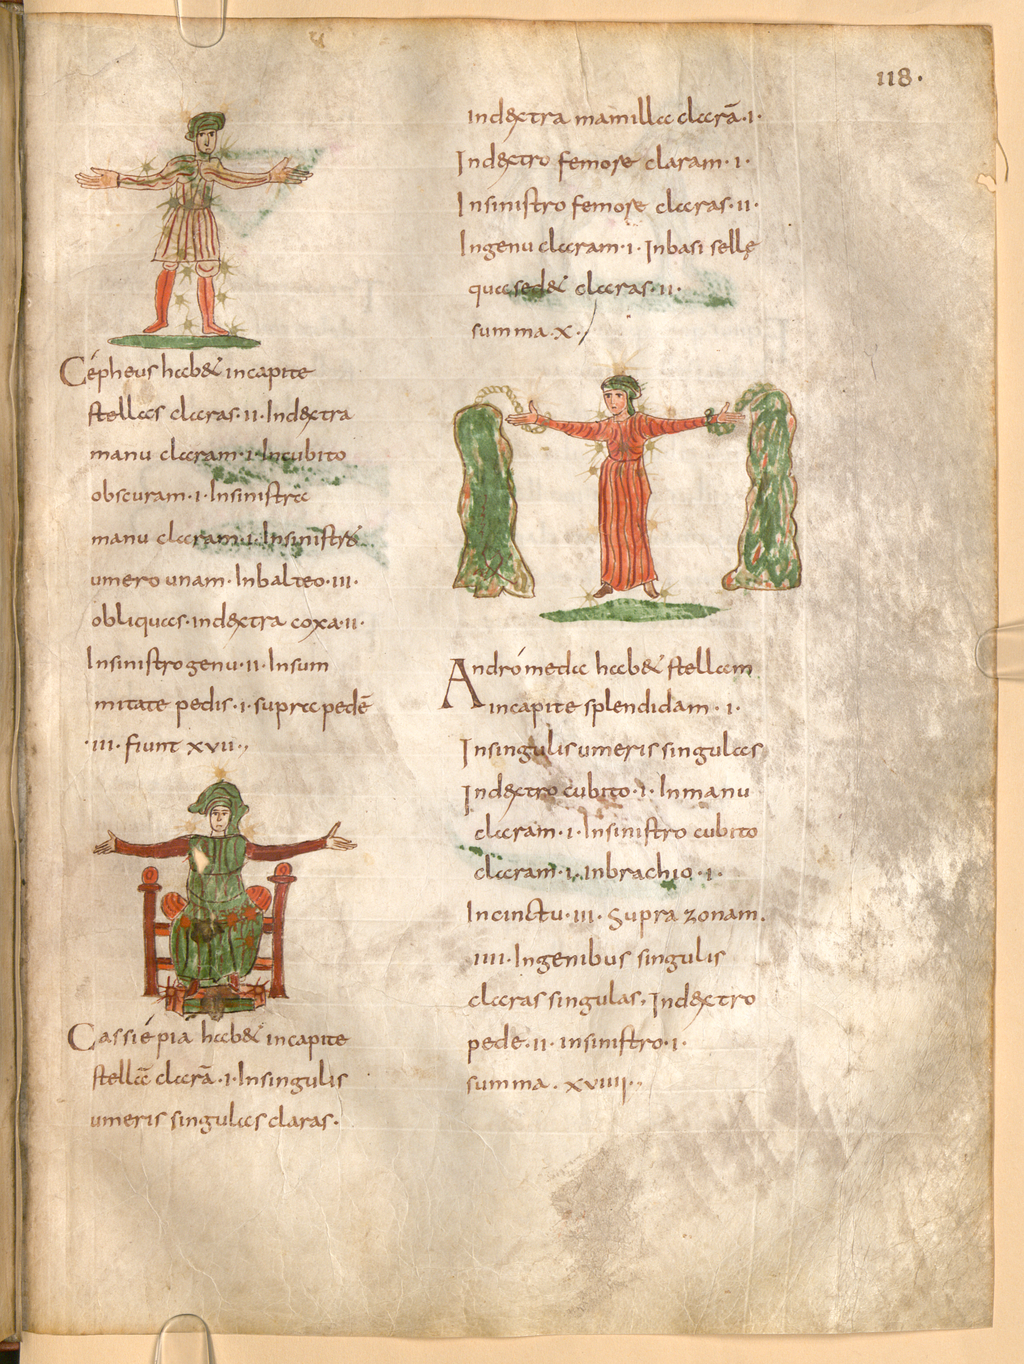 118.
Cépheus hab& incapite
stellas claras·II·Indextra
manu claram·I·Incubito
obscuram·I·Insinistra
manu claram·I·Insinistro
umero unam·Inbalteo·III·
obliquas·indextra coxa·II·
Insinistrogenu·II·Insum
mitate pedis·I·supra pedē
·III·fiunt XVII·,
Cassiépia hab& incapite
stellā clarā·I·Insingulis
umeris singulas claras·
Indextra mamilla clarā·I·
Indextro femore claram·I·
Insinistro femore claras·II·
Ingenu claram·I·Inbasi sellę
qua sed& claras·II·
summa·X·/
Andrómeda hab& stellam
incapite splendidam·I·
Insingulis umeris singulas
Indextro cubito·I·Inmanu
claram·I·Insinistro cubito
claram·I·Inbrachio·I·
Incinctu·III·Supra zonam.
IIII·Ingenibus singulis
claras singulas, Indextro
pede·II·insinistro·I·
summa·XVIIII·,